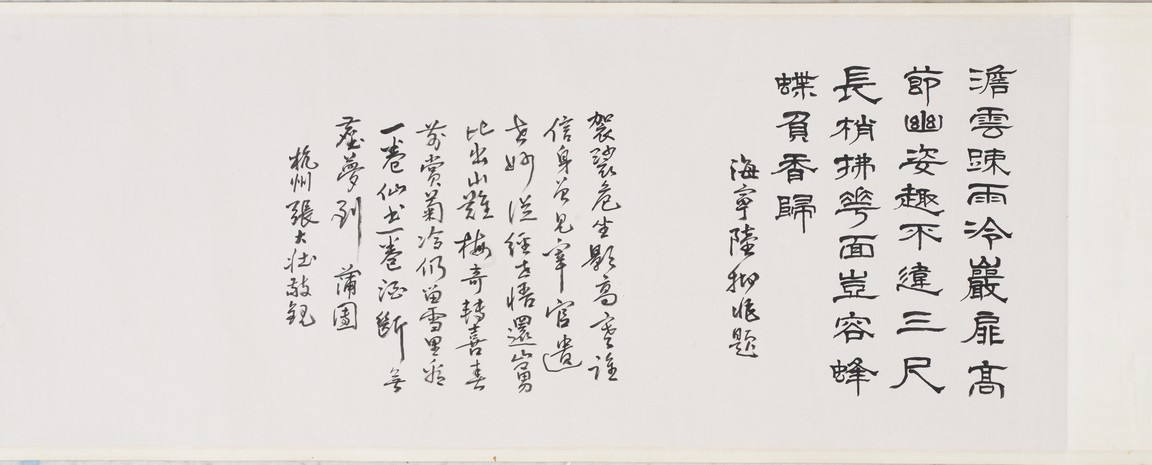 澹雲疎雨冷巖扉高
節幽姿趣不違三尺
長梢拂花面豈容蜂
蝶負香歸
海寧陸抑非題
袈裟危坐影高寒誰
信身曾見宰官遺
世妙從經世悟還山
比出山難梅奇轉喜春
前賞菊冷仍留雪里看
一卷仙書一卷酒斷無
塵夢到蒲團
杭州張大壯敬